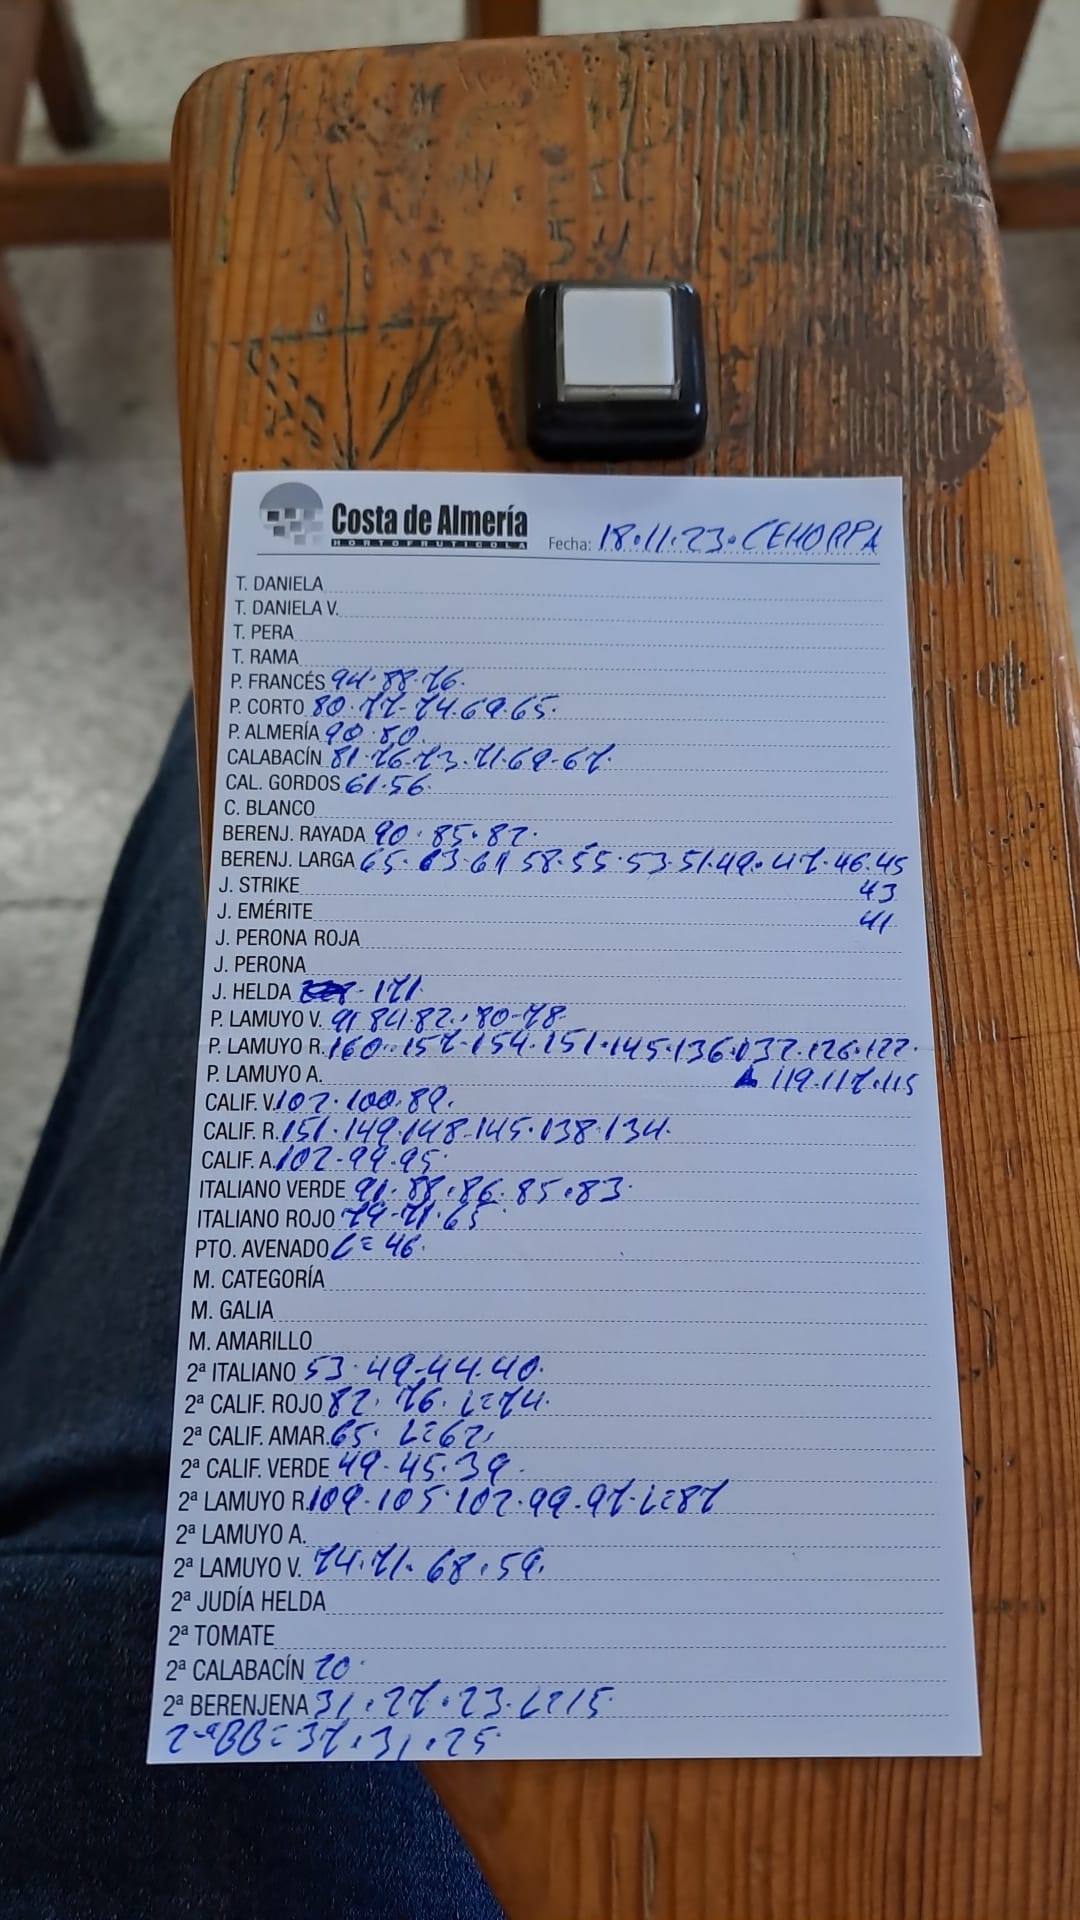 Costa de Almería
HORTOFRUTICOLA
Fecha: 18.11.23. CEHORPA
T. DANIELA
T. DANIELA V.
T. PERA
T. RAMA
P. FRANCÉS 94.88.76.
P. CORTO 80.77-74.69.65.
P. ALMERÍA 90.80.
CALABACÍN 81.76.73.71.69-67.
CAL. GORDOS 61.56.
C. BLANCO
BERENJ. RAYADA 90.85.82.
BERENJ. LARGA 65.63.61 58.55.53.51.49.47.46.45
J. STRIKE 43
J. EMÉRITE 41
J. PERONA ROJA
J. PERONA
J. HELDA - 171.
P. LAMUYO V. 91 84.82.. 80-78.
P. LAMUYO R. 160..157-154.151.145.136.132.126.122.
P. LAMUYO A. 119.117.115
CALIF. V. 102.100.89.
CALIF. R. 151.149.148-145.138.134.
CALIF. A. 102-99.95.
ITALIANO VERDE 91.88.86.85.83.
ITALIANO ROJO 79-71.65
PTO. AVENADO L=46.
M. CATEGORÍA
M. GALIA
M. AMARILLO
2ª ITALIANO 53.49-44.40.
2ª CALIF. ROJO 82.76.L=74.
2ª CALIF. AMAR. 65. L=62.
2ª CALIF. VERDE 49-45.39.
2ª LAMUYO R. 109.105.102.99.97.L=87
2ª LAMUYO A.
2ª LAMUYO V. 74.71.68.59.
2ª JUDÍA HELDA
2ª TOMATE
2ª CALABACÍN 20.
2ª BERENJENA 31.27.23.L=15.
2-ªBB=37.31.25.